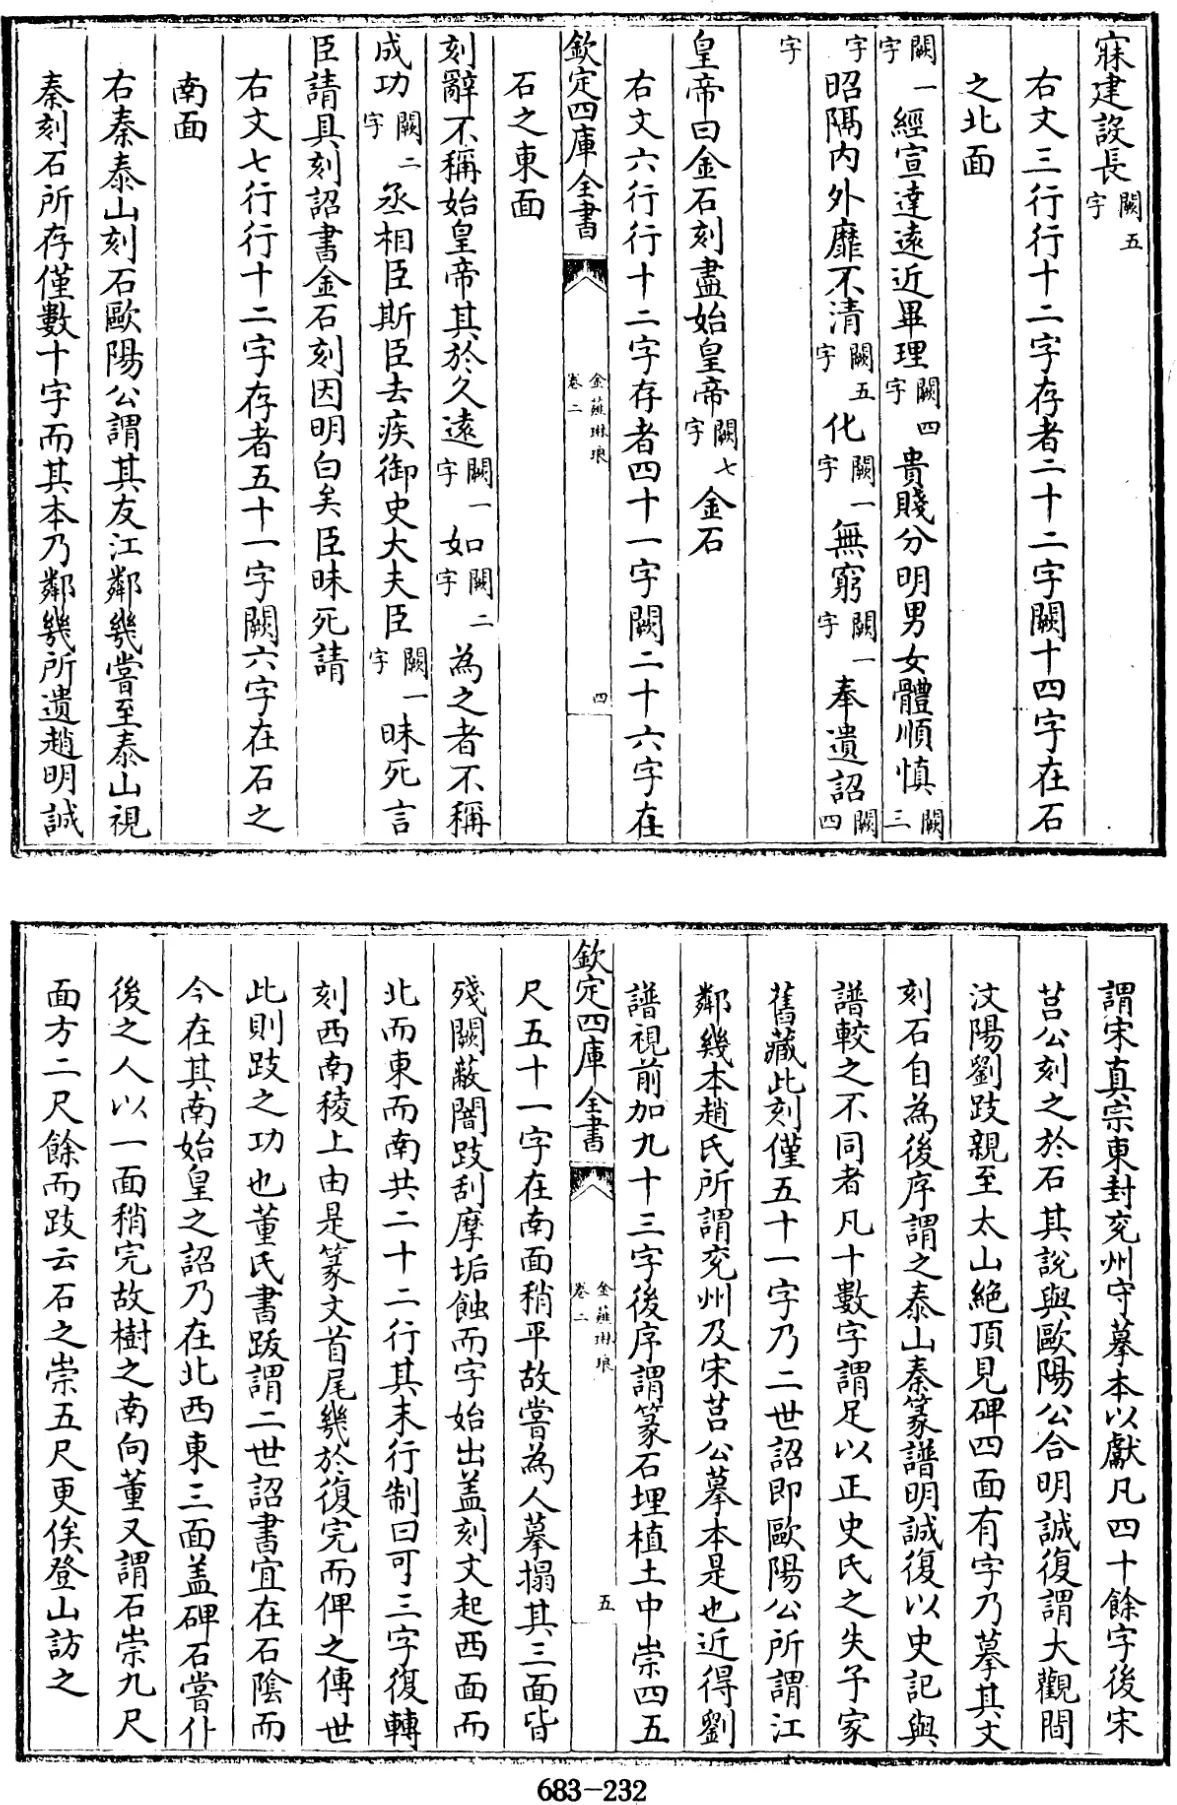 寐建設長闕五字
右文三行行十二字存者二十二字闕十四字在石
之北面
闕一字經宣達遠近畢理闕四字貴賤分明男女體順慎闕三
字昭隔内外靡不清闕五字化闕一字無窮闕一字奉遺詔闕四
字
皇帝曰金石刻盡始皇帝闕七字金石
右文六行行十二字存者四十一字闕二十六字在
欽定四庫全書
金薤琳琅
卷二
四
石之東面
刻辭不稱始皇帝其於久遠闕一字如闕二字為之者不稱
成功闕二字丞相臣斯臣去疾御史大夫臣闕一字昧死言
臣請具刻詔書金石刻因明白矣臣昧死請
右文七行行十二字存者五十一字闕六字在石之
南面
右秦泰山刻石歐陽公謂其友江鄰幾嘗至泰山視
秦刻石所存僅數十字而其本乃鄰幾所遺趙明誠
謂宋真宗東封兖州守摹本以獻凡四十餘字後宋
莒公刻之於石其說與歐陽公合明誠復謂大觀間
汶陽劉跂親至太山絶頂見碑四面有字乃摹其文
刻石自為後序謂之泰山秦篆譜明誠復以史記與
譜較之不同者凡十數字謂足以正史氏之失予家
舊藏此刻僅五十一字乃二世詔即歐陽公所謂江
鄰幾本趙氏所謂兖州及宋莒公摹本是也近得劉
譜視前加九十三字後序謂篆石埋植土中崇四五
欽定四庫全書
金薤琳琅
卷二
五
尺五十一字在南面稍平故嘗為人摹搨其三面皆
殘闕蔽闇跂刮摩垢蝕而字始出盖刻文起西面而
北而東而南共二十二行其末行制曰可三字復轉
刻西南稜上由是篆文首尾幾於復完而俾之傳世
此則跂之功也董氏書跋謂二世詔書宜在石陰而
今在其南始皇之詔乃在北西東三面盖碑石嘗仆
後之人以一面稍完故樹之南向董又謂石崇九尺
面方二尺餘而跂云石之崇五尺更俟登山訪之
683-232